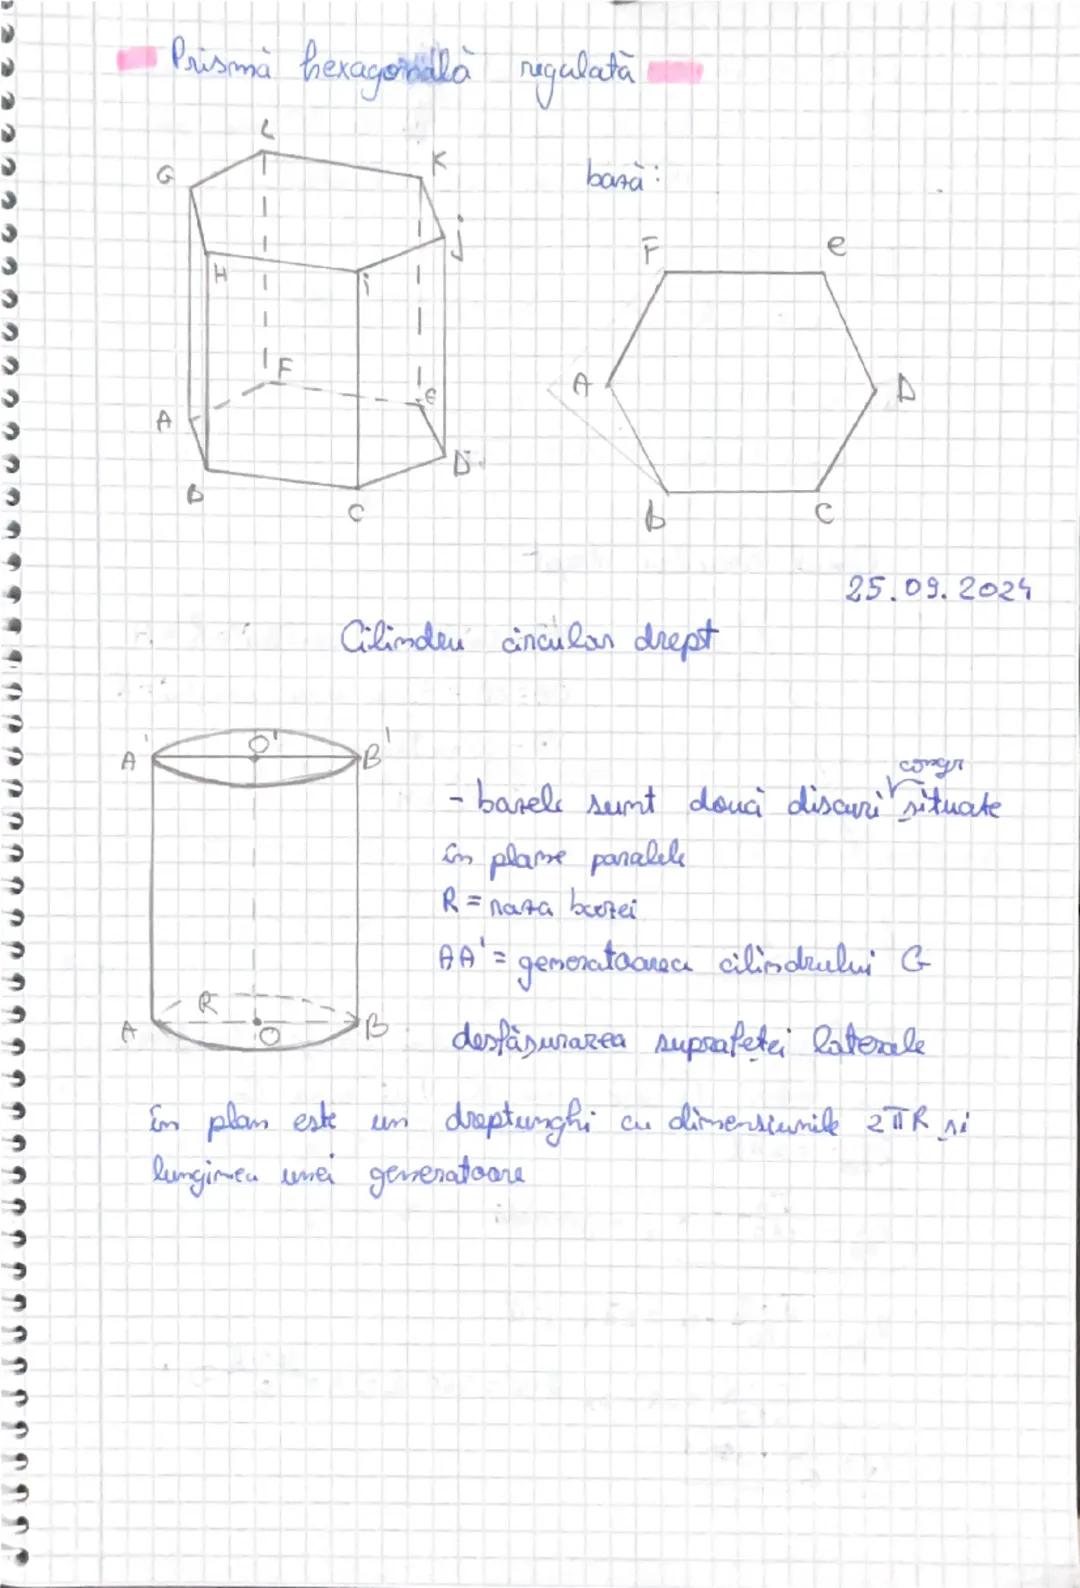 Prismă hexagonală regulată
bază:
L
G
K
J
H
i
F
A
e
D
B
C
F
e
A
D
b
C
25.09.2024
Cilindru circular drept
A'
O'
B'
congr
- bazele sunt două discuri situate
în plane paralele
R = raza bazei
AA' = generatoarea cilindrului G
R
A
O
B
desfășurarea suprafeței laterale
în plan este un dreptunghi cu dimensiunile 2πR și
lungimea unei generatoare